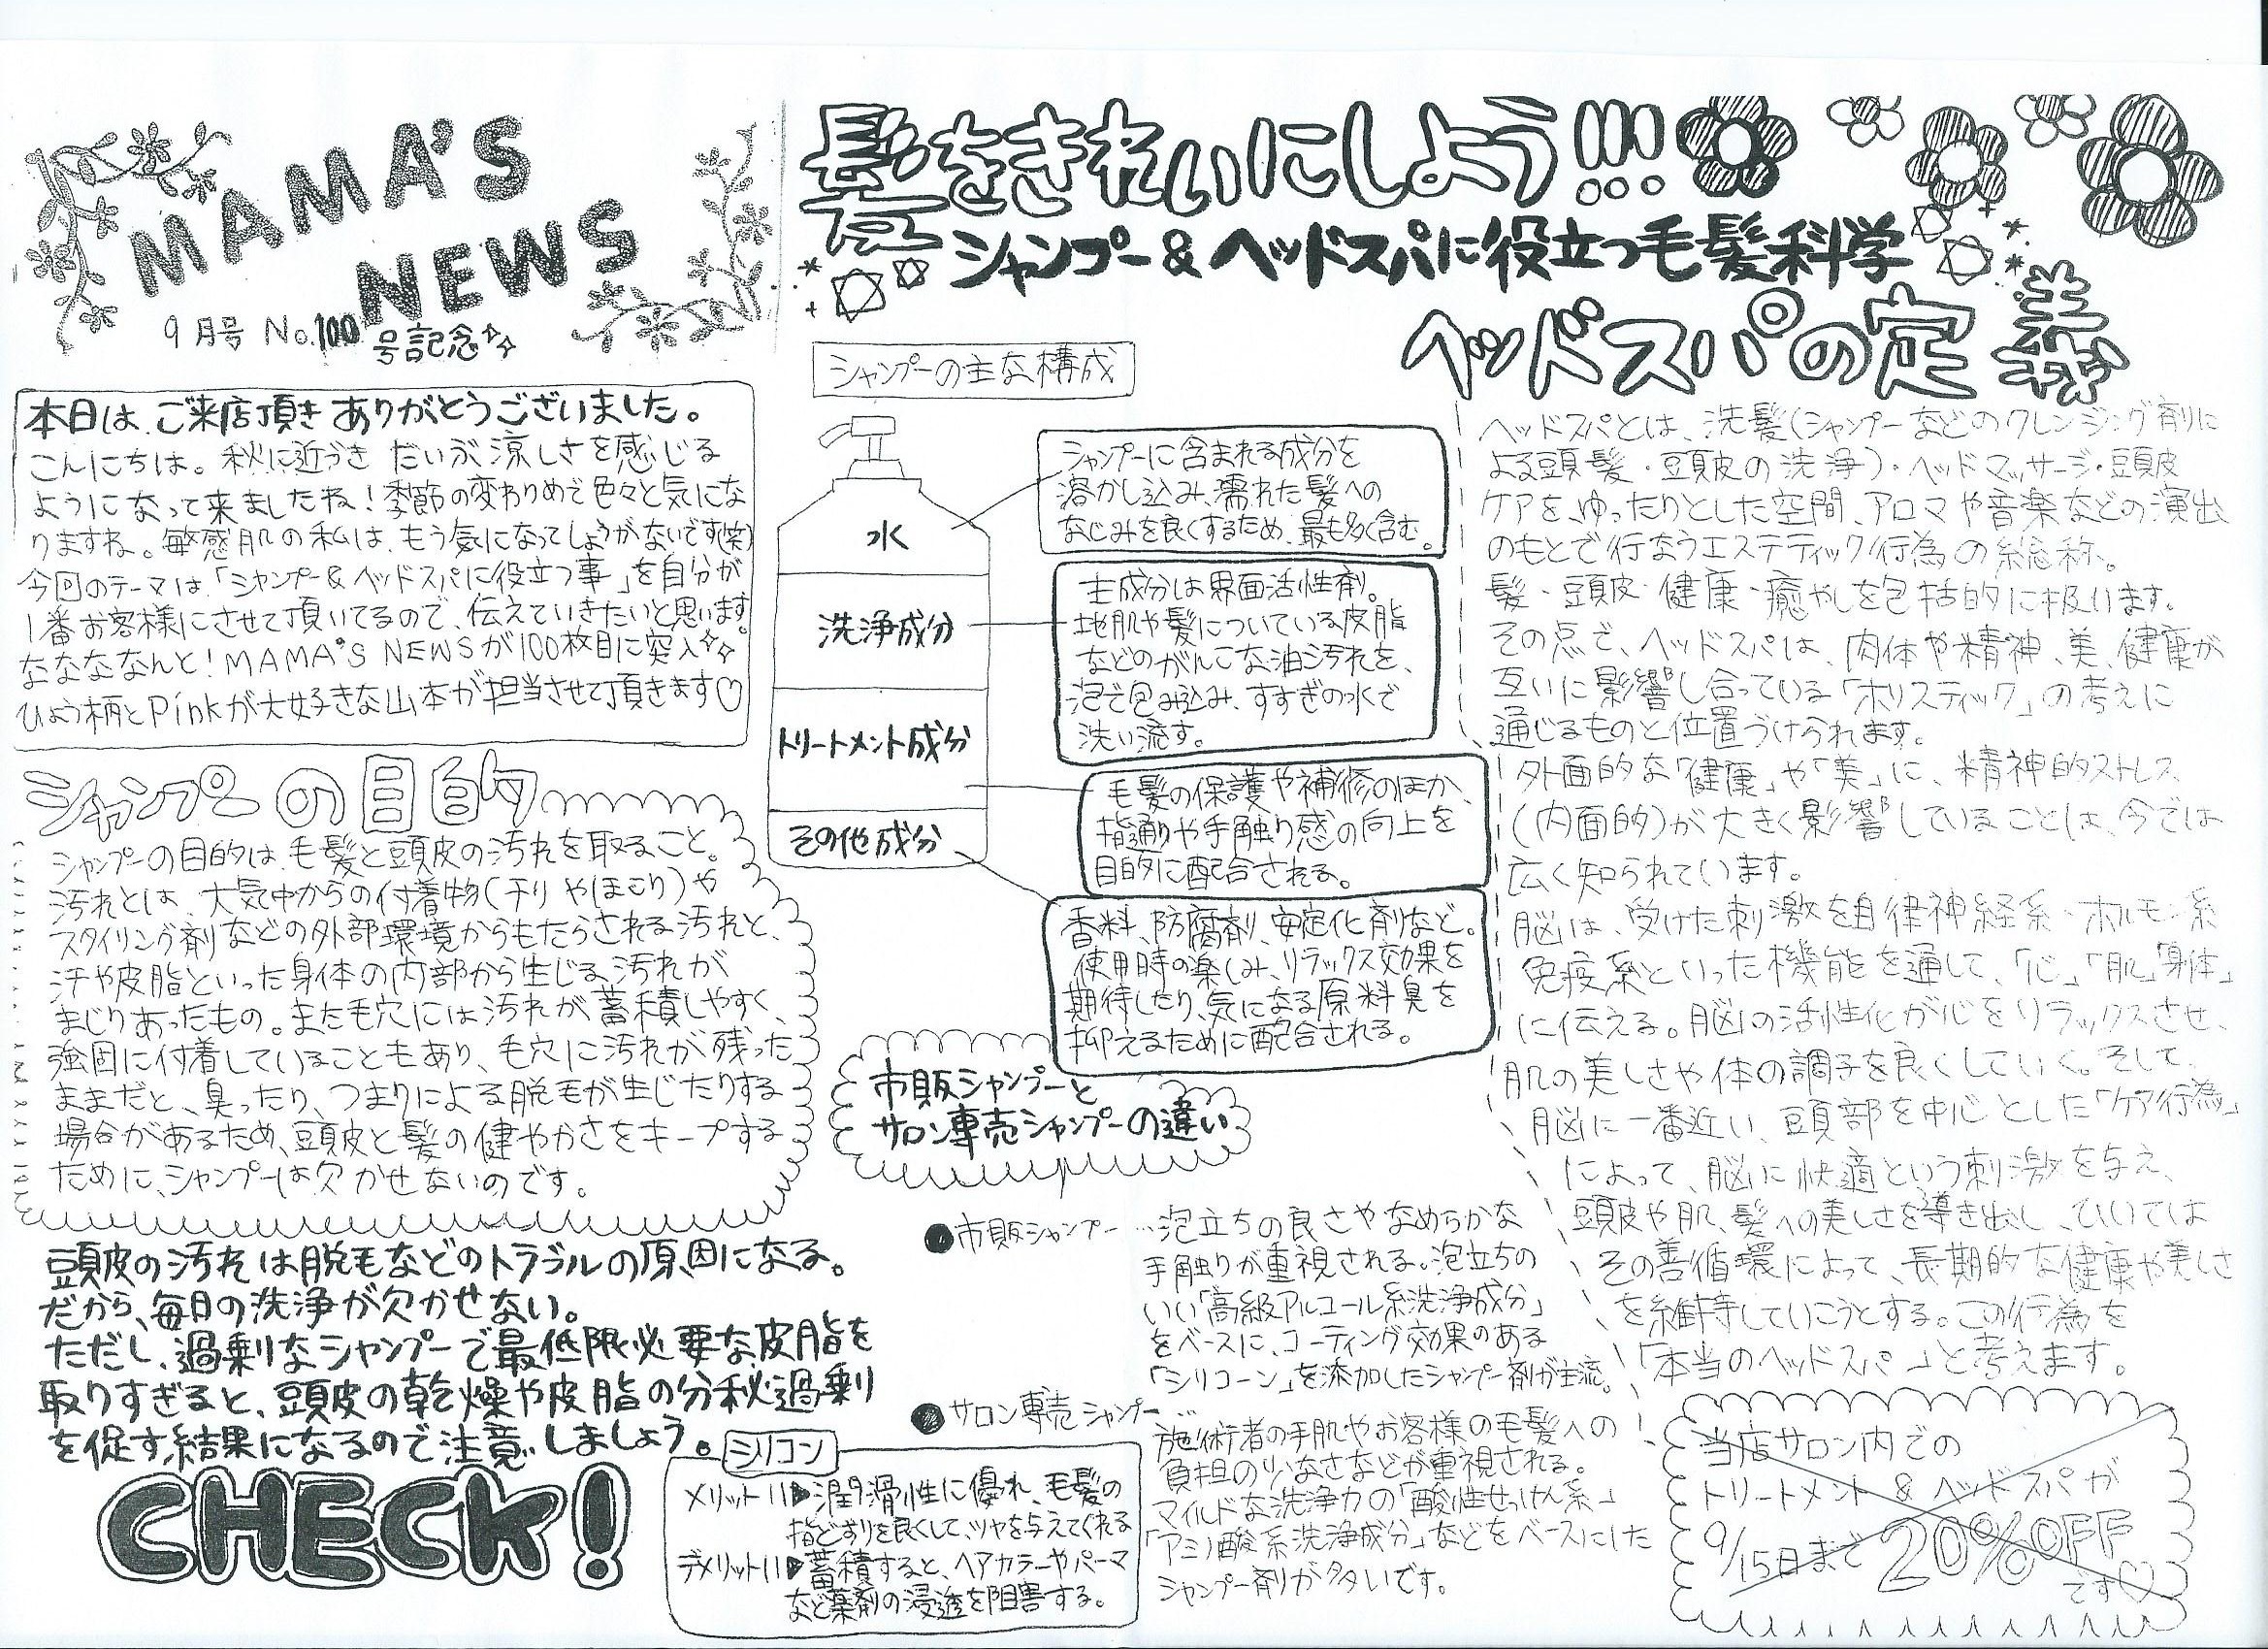 MAMA'S
NEWS
9月号 No.100
号記念
本日は、ご来店頂き ありがとうございました。
こんにちは。秋に近づき だいぶ涼しさを感じる
ようになって来ましたね！季節の変わりめで色々と気にな
りますね。敏感肌の私は、もう気になってしょうがないです(笑)
今回のテーマは「シャンプー&ヘッドスパに役立つ事」を自分が
1番お客様にさせて頂いてるので、伝えていきたいと思います。
なななななんと！MAMA'S NEWSが100枚目に突入
ひょう柄とPinkが大好きな山本が担当させて頂きます♡
シャンプーの目的
シャンプーの目的は、毛髪と頭皮の汚れを取ること。
汚れとは、大気中からの付着物(チリやほこり)や
スタイリング剤などの外部環境からもたらされる汚れと、
汗や皮脂といった身体の内部から生じる汚れが
まじりあったもの。また毛穴には汚れが蓄積しやすく、
強固に付着していることもあり、毛穴に汚れが残った
ままだと、臭ったり、つまりによる脱毛が生じたりする
場合があるため、頭皮と髪の健やかさをキープする
ために、シャンプーは欠かせないのです。
頭皮の汚れは脱毛などのトラブルの原因になる。
だから、毎月の洗浄が欠かせない。
ただし、過剰なシャンプーで最低限必要な皮脂を
取りすぎると、頭皮の乾燥や皮脂の分秘過剰
を促す結果になるので注意しましょう。
CHECK!
髪をきれいにしよう!!!
シャンプー&ヘッドスパに役立つ毛髪科学
シャンプーの主な構成
水
洗浄成分
トリートメント成分
その他成分
シャンプーに含まれる成分を
溶かし込み、濡れた髪への
なじみを良くするため、最も多く含む。
主成分は界面活性剤。
地肌や髪についている皮脂
などのがんこな油汚れを、
泡で包み込み、すすぎの水で
洗い流す。
毛髪の保護や補修のほか、
指通りや手触り感の向上を
目的に配合される。
香料、防腐剤、安定化剤など。
使用時の楽しみ、リラックス効果を
期待したり、気になる原料臭を
抑えるために配合される。
市販シャンプーと
サロン専売シャンプーの違い
●市販シャンプー…泡立ちの良さやなめらかな
手触りが重視される。泡立ちの
いい「高級アルコール系洗浄成分」
をベースに、コーティング効果のある
「シリコーン」を添加したシャンプー剤が主流。
●サロン専売シャンプー…
施術者の手肌やお客様の毛髪への
負担の少なさなどが重視される。
マイルドな洗浄力の「酸性せっけん系」
「アミノ酸系洗浄成分」などをベースにした
シャンプー剤が多いです。
シリコン
メリット▶潤滑性に優れ、毛髪の
指どおりを良くして、ツヤを与えてくれる
デメリット▶蓄積すると、ヘアカラーやパーマ
など薬剤の浸透を阻害する。
ヘッドスパの定義
ヘッドスパとは、洗髪(シャンプーなどのクレンジング剤に
よる頭髪・頭皮の洗浄)・ヘッドマッサージ・頭皮
ケアを、ゆったりとした空間、アロマや音楽などの演出
のもとで行なうエステティック行為の総称。
髪・頭皮・健康・癒やしを包括的に扱います。
その点で、ヘッドスパは、肉体や精神、美、健康が
互いに影響し合っている「ホリスティック」の考えに
通じるものと位置づけられます。
外面的な「健康」や「美」に、精神的ストレス
(内面的)が大きく影響していることは、今では
広く知られています。
脳は、受けた刺激を自律神経系・ホルモン系
免疫系といった機能を通して、「心」「肌」「身体」
に伝える。脳の活性化が心をリラックスさせ、
肌の美しさや体の調子を良くしていく。そして、
脳に一番近い、頭部を中心とした「ケア行為」
によって、脳に快適という刺激を与え、
頭皮や肌、髪への美しさを導き出し、ひいては
その善循環によって、長期的な健康や美しさ
を維持していこうとする。この行為を
「本当のヘッドスパ」と考えます。
当店サロン内での
トリートメント & ヘッドスパが
9/15日まで 20%OFF
です♡